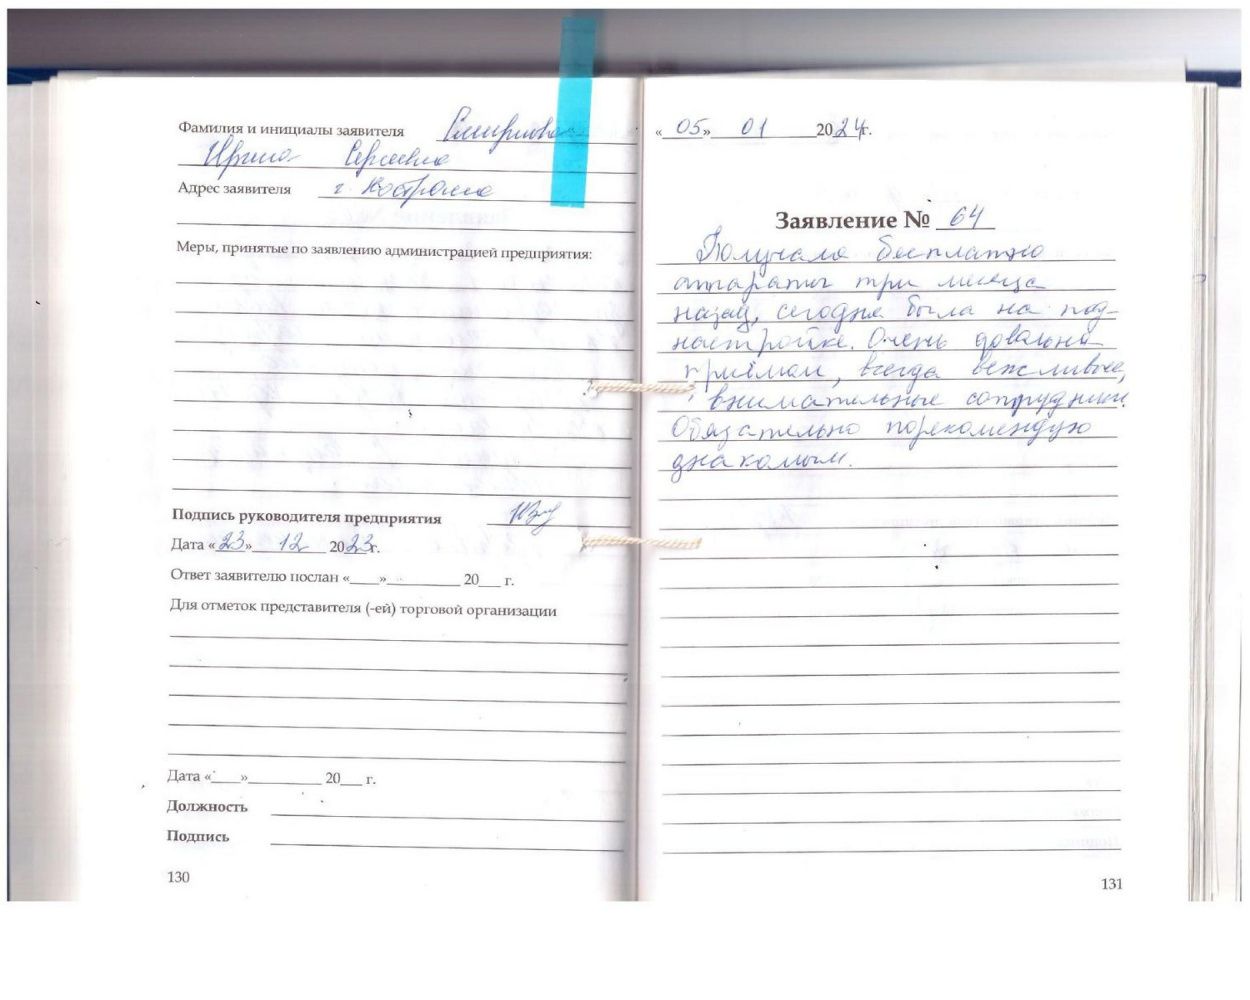 Фамилия и инициалы заявителя Смирнова
Ирина Сергеевна
Адрес заявителя г. Кострома
Меры, принятые по заявлению администрацией предприятия:
Подпись руководителя предприятия
Дата «23» 12 2023г.
Ответ заявителю послан «___»__________ 20___ г.
Для отметок представителя (-ей) торговой организации
Дата «___»__________ 20___ г.
Должность
Подпись
130
«05» 01 2024г.
Заявление № 64
Получала бесплатно
аппараты три месяца
назад, сегодня была на под-
настройке. Очень довольна
приёмом, всегда вежливые,
внимательные сотрудники.
Обязательно порекомендую
знакомым.
131